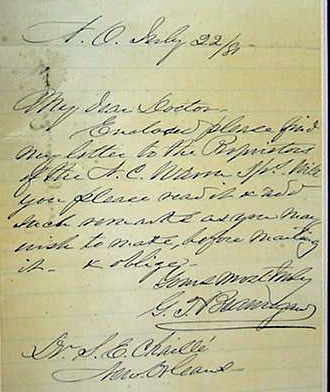 N.O. July 22/81
My dear Doctor.
Enclosed please find
my letter to the Proprietors
of the N.C. Warm Sps. Will
you please read it & add
such remarks as you may
wish to make, before mailing
it. & oblige
Yours most truly
G. T.
Dr. S. E. Chaillé
New Orleans